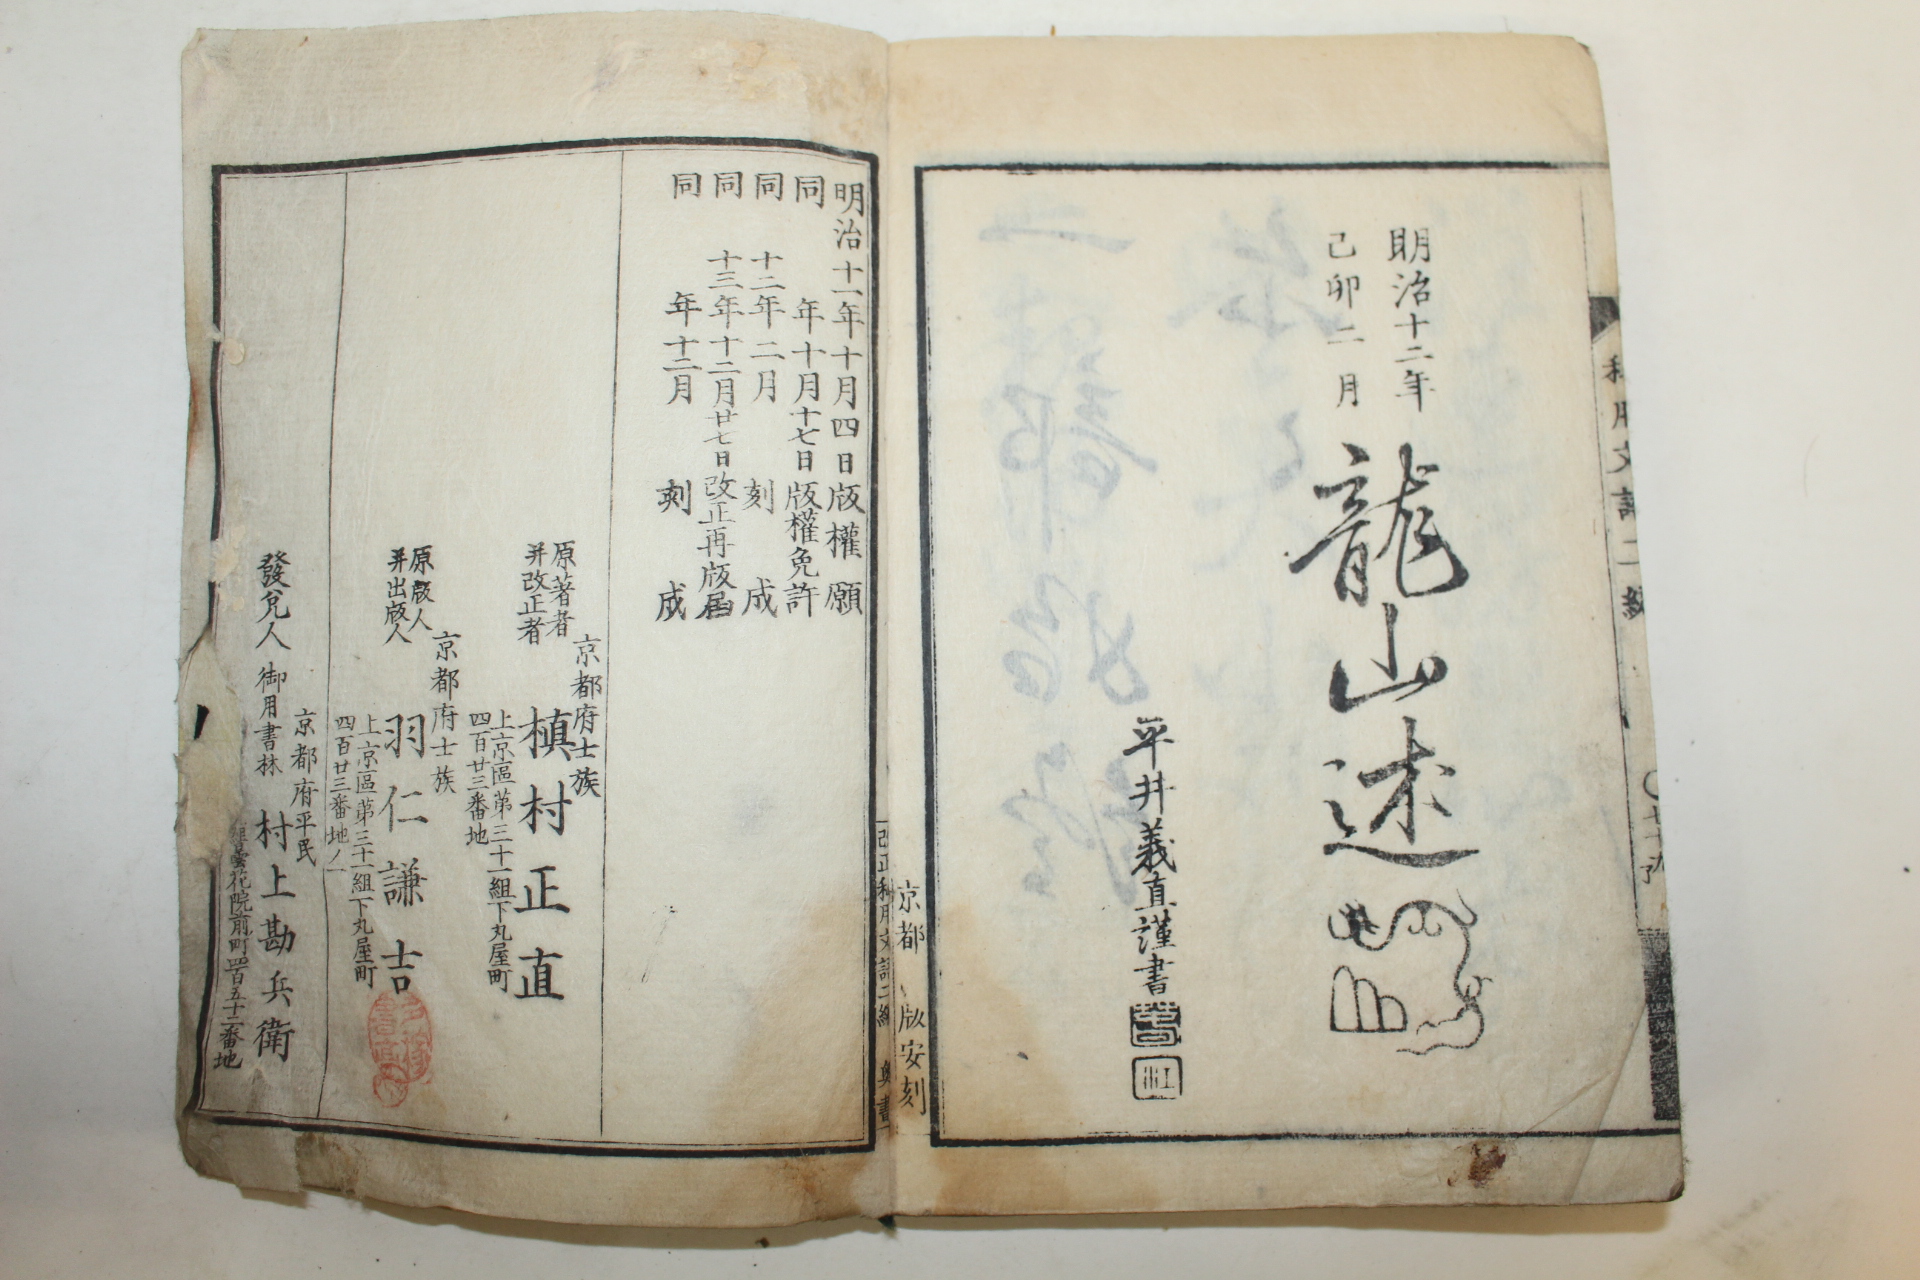 明治十二年
己卯二月
龍山述
平井義直謹書
京都 版安刻
改正利用文語二編 奥書
明治十一年十月四日版權願
同 年十月十七日版權免許
同 十二年二月 刻成
同 十三年十二月廿七日改正再版届
同 年十二月 刻成
原著者
并改正者
京都府士族
槙村正直
上京區第三十一組下丸屋町
四百廿三番地
原版人
并出版人
京都府士族
羽仁謙吉
上京區第三十一組下丸屋町
四百廿三番地ノ一
發兌人
御用書林
京都府平民
村上勘兵衛
花院前町四百五十二番地